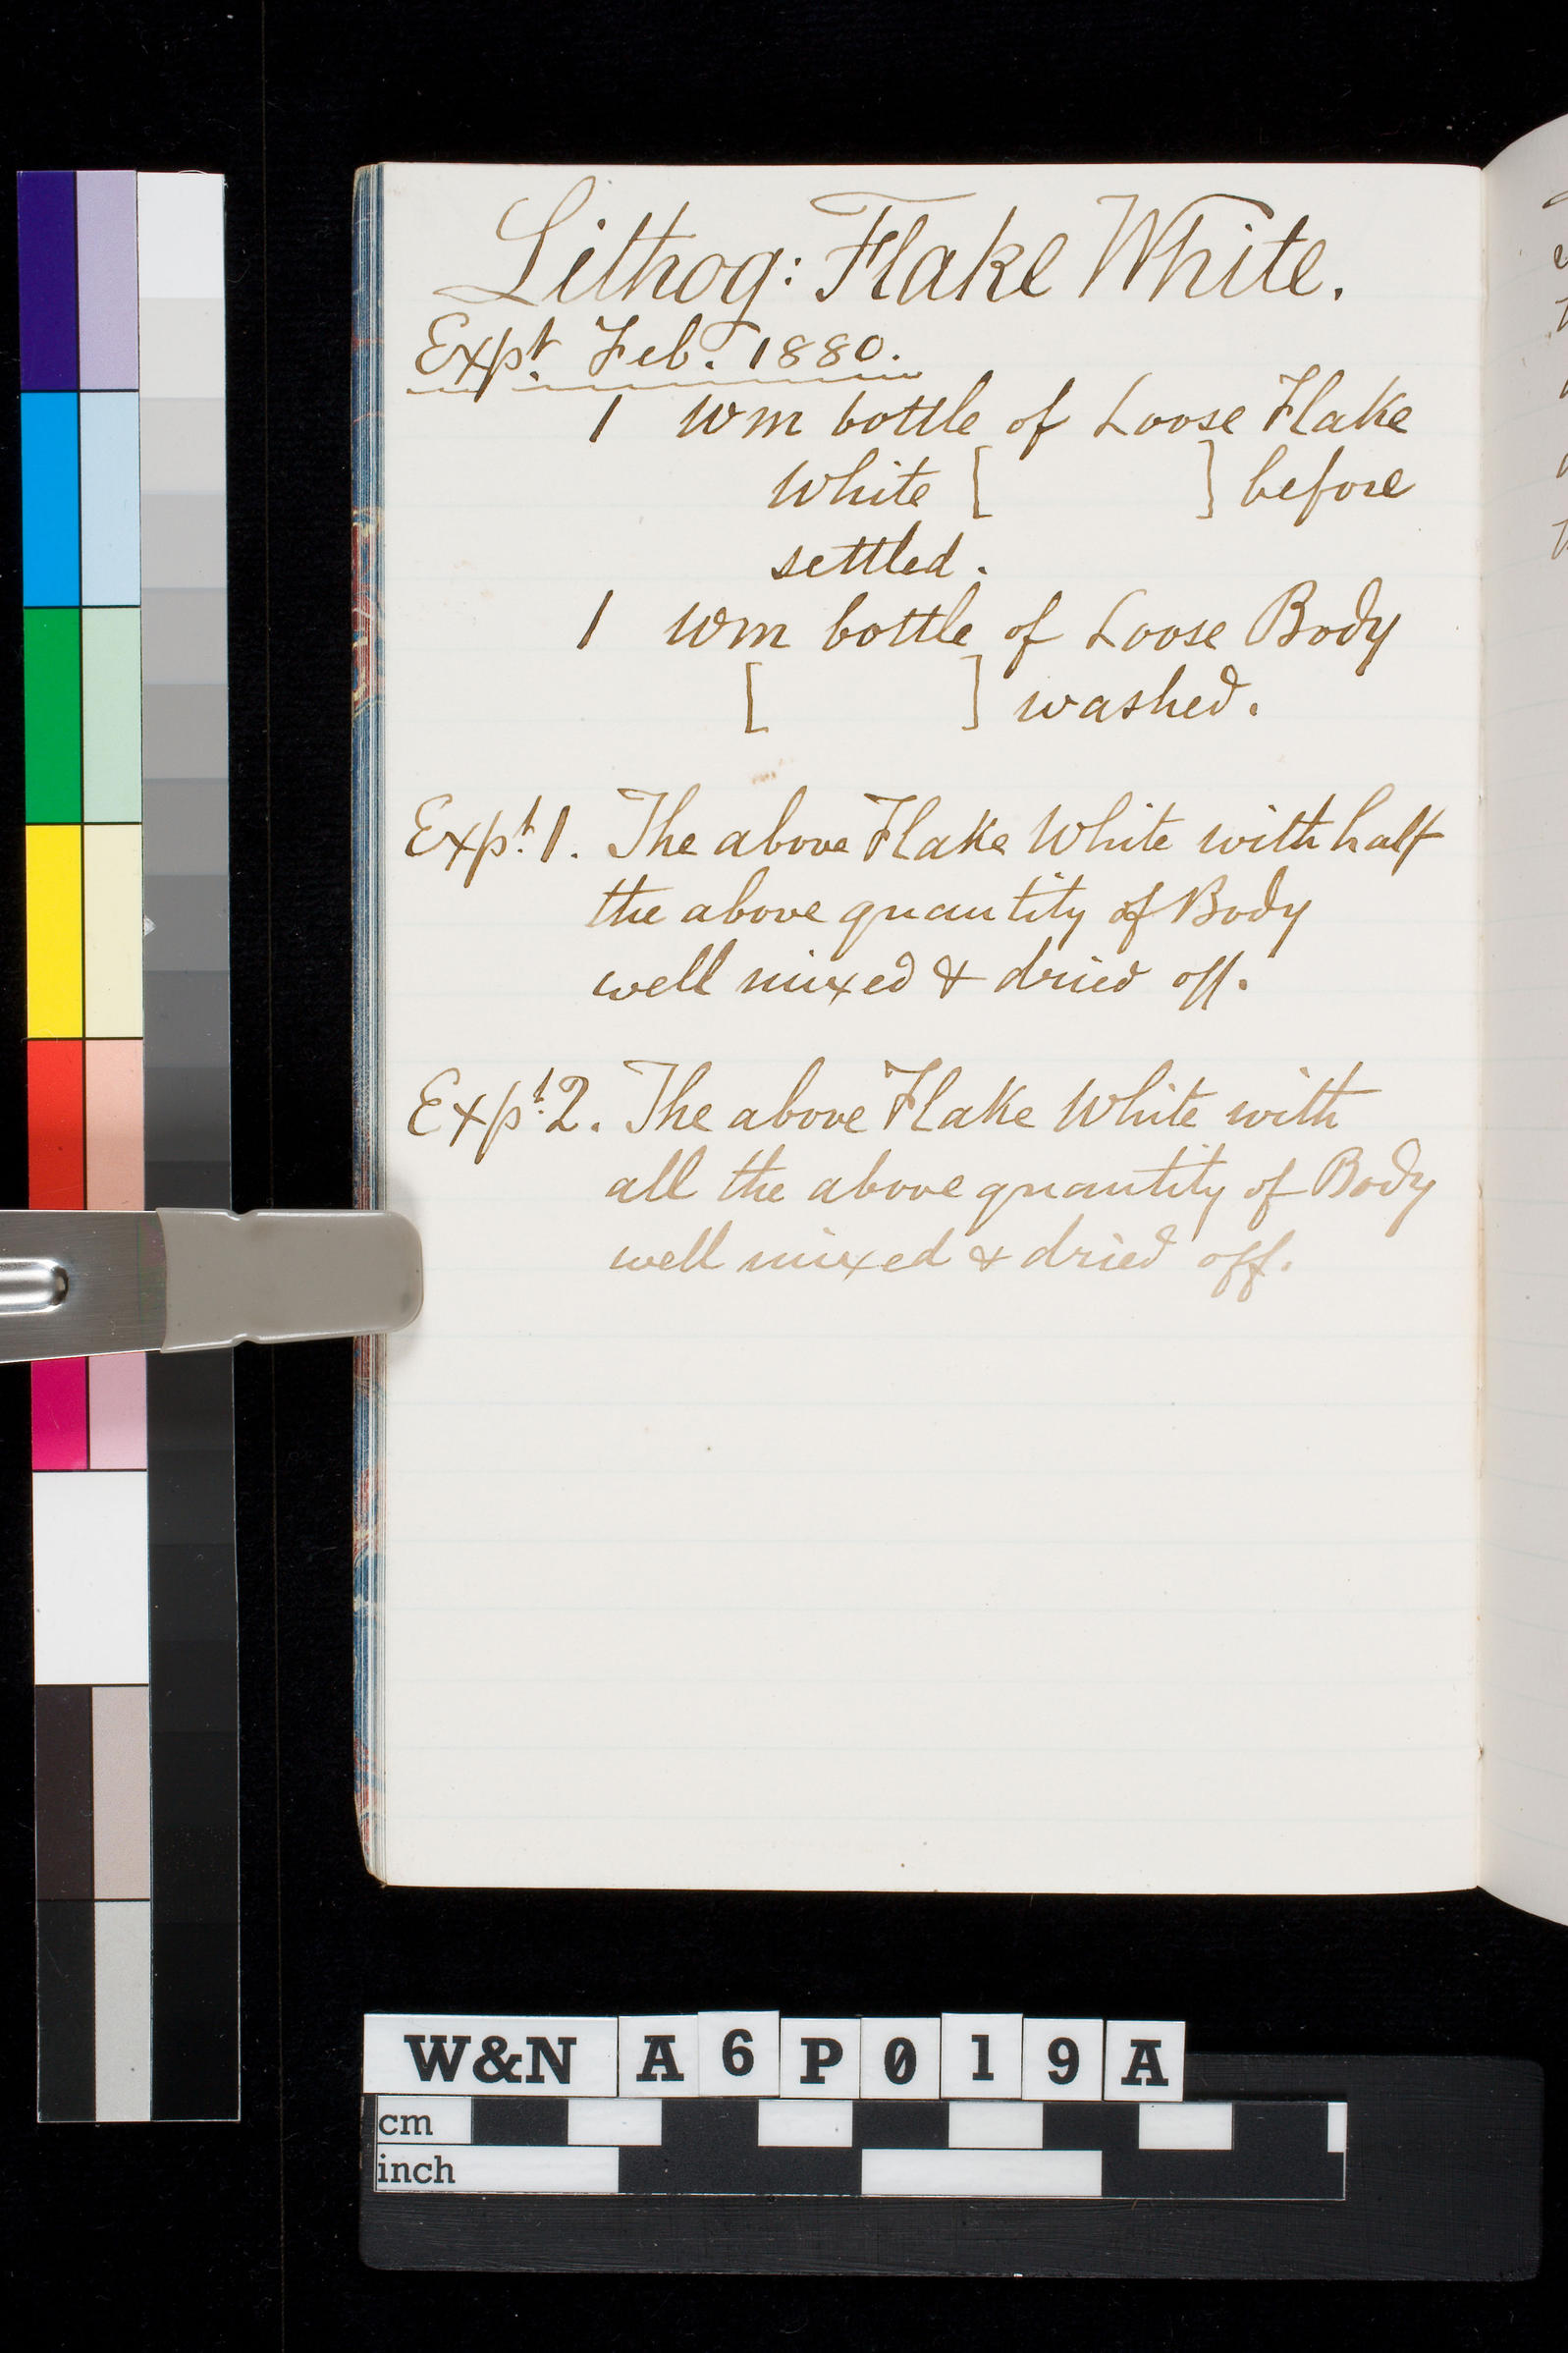 Lithog: Flake White.
Expt. Feb. 1880.
1 wm bottle of Loose Flake
White [ ] before
settled.
1 wm bottle of Loose Body
[ ] washed.
Expt. 1. The above Flake White with half
the above quantity of Body
well mixed & dried off.
Expt. 2. The above Flake White with
all the above quantity of Body
well mixed & dried off.
W&N A6P019A
cm
inch